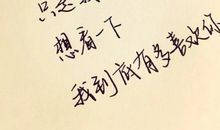 只是
想看一下
我到底有多喜欢你